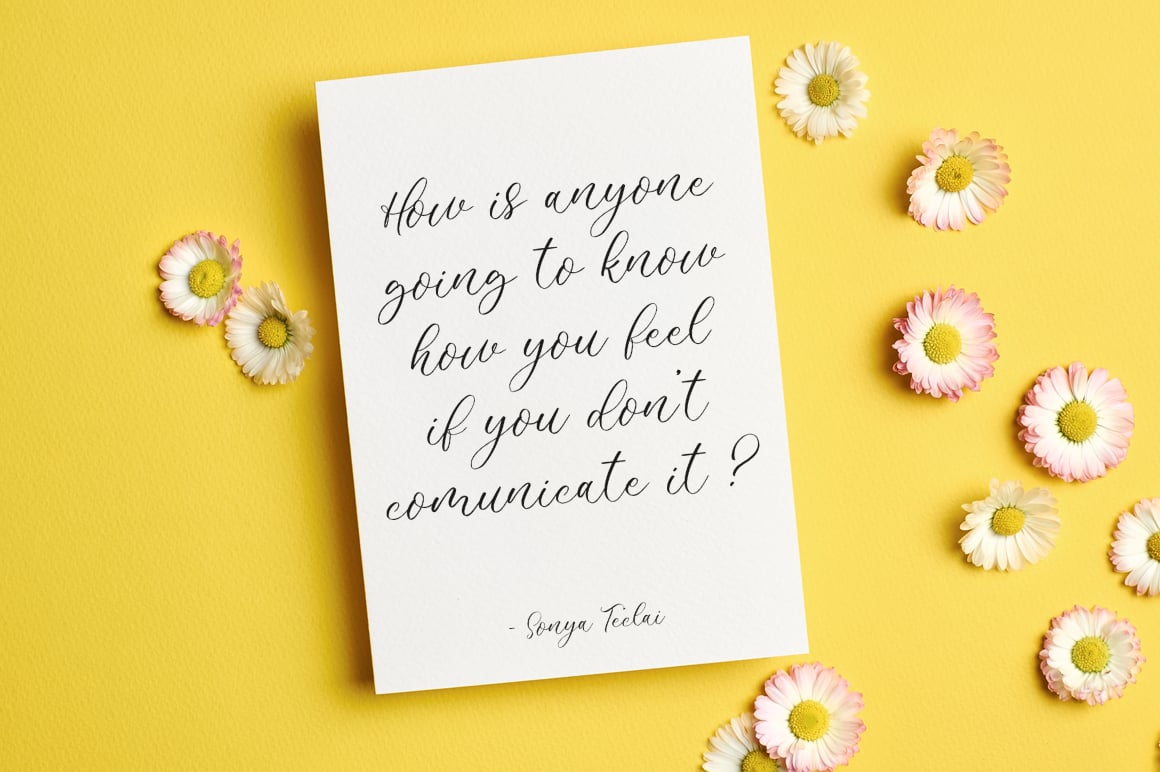 How is anyone
going to know
how you feel
if you don't
comunicate it ?
- Sonya Teclai